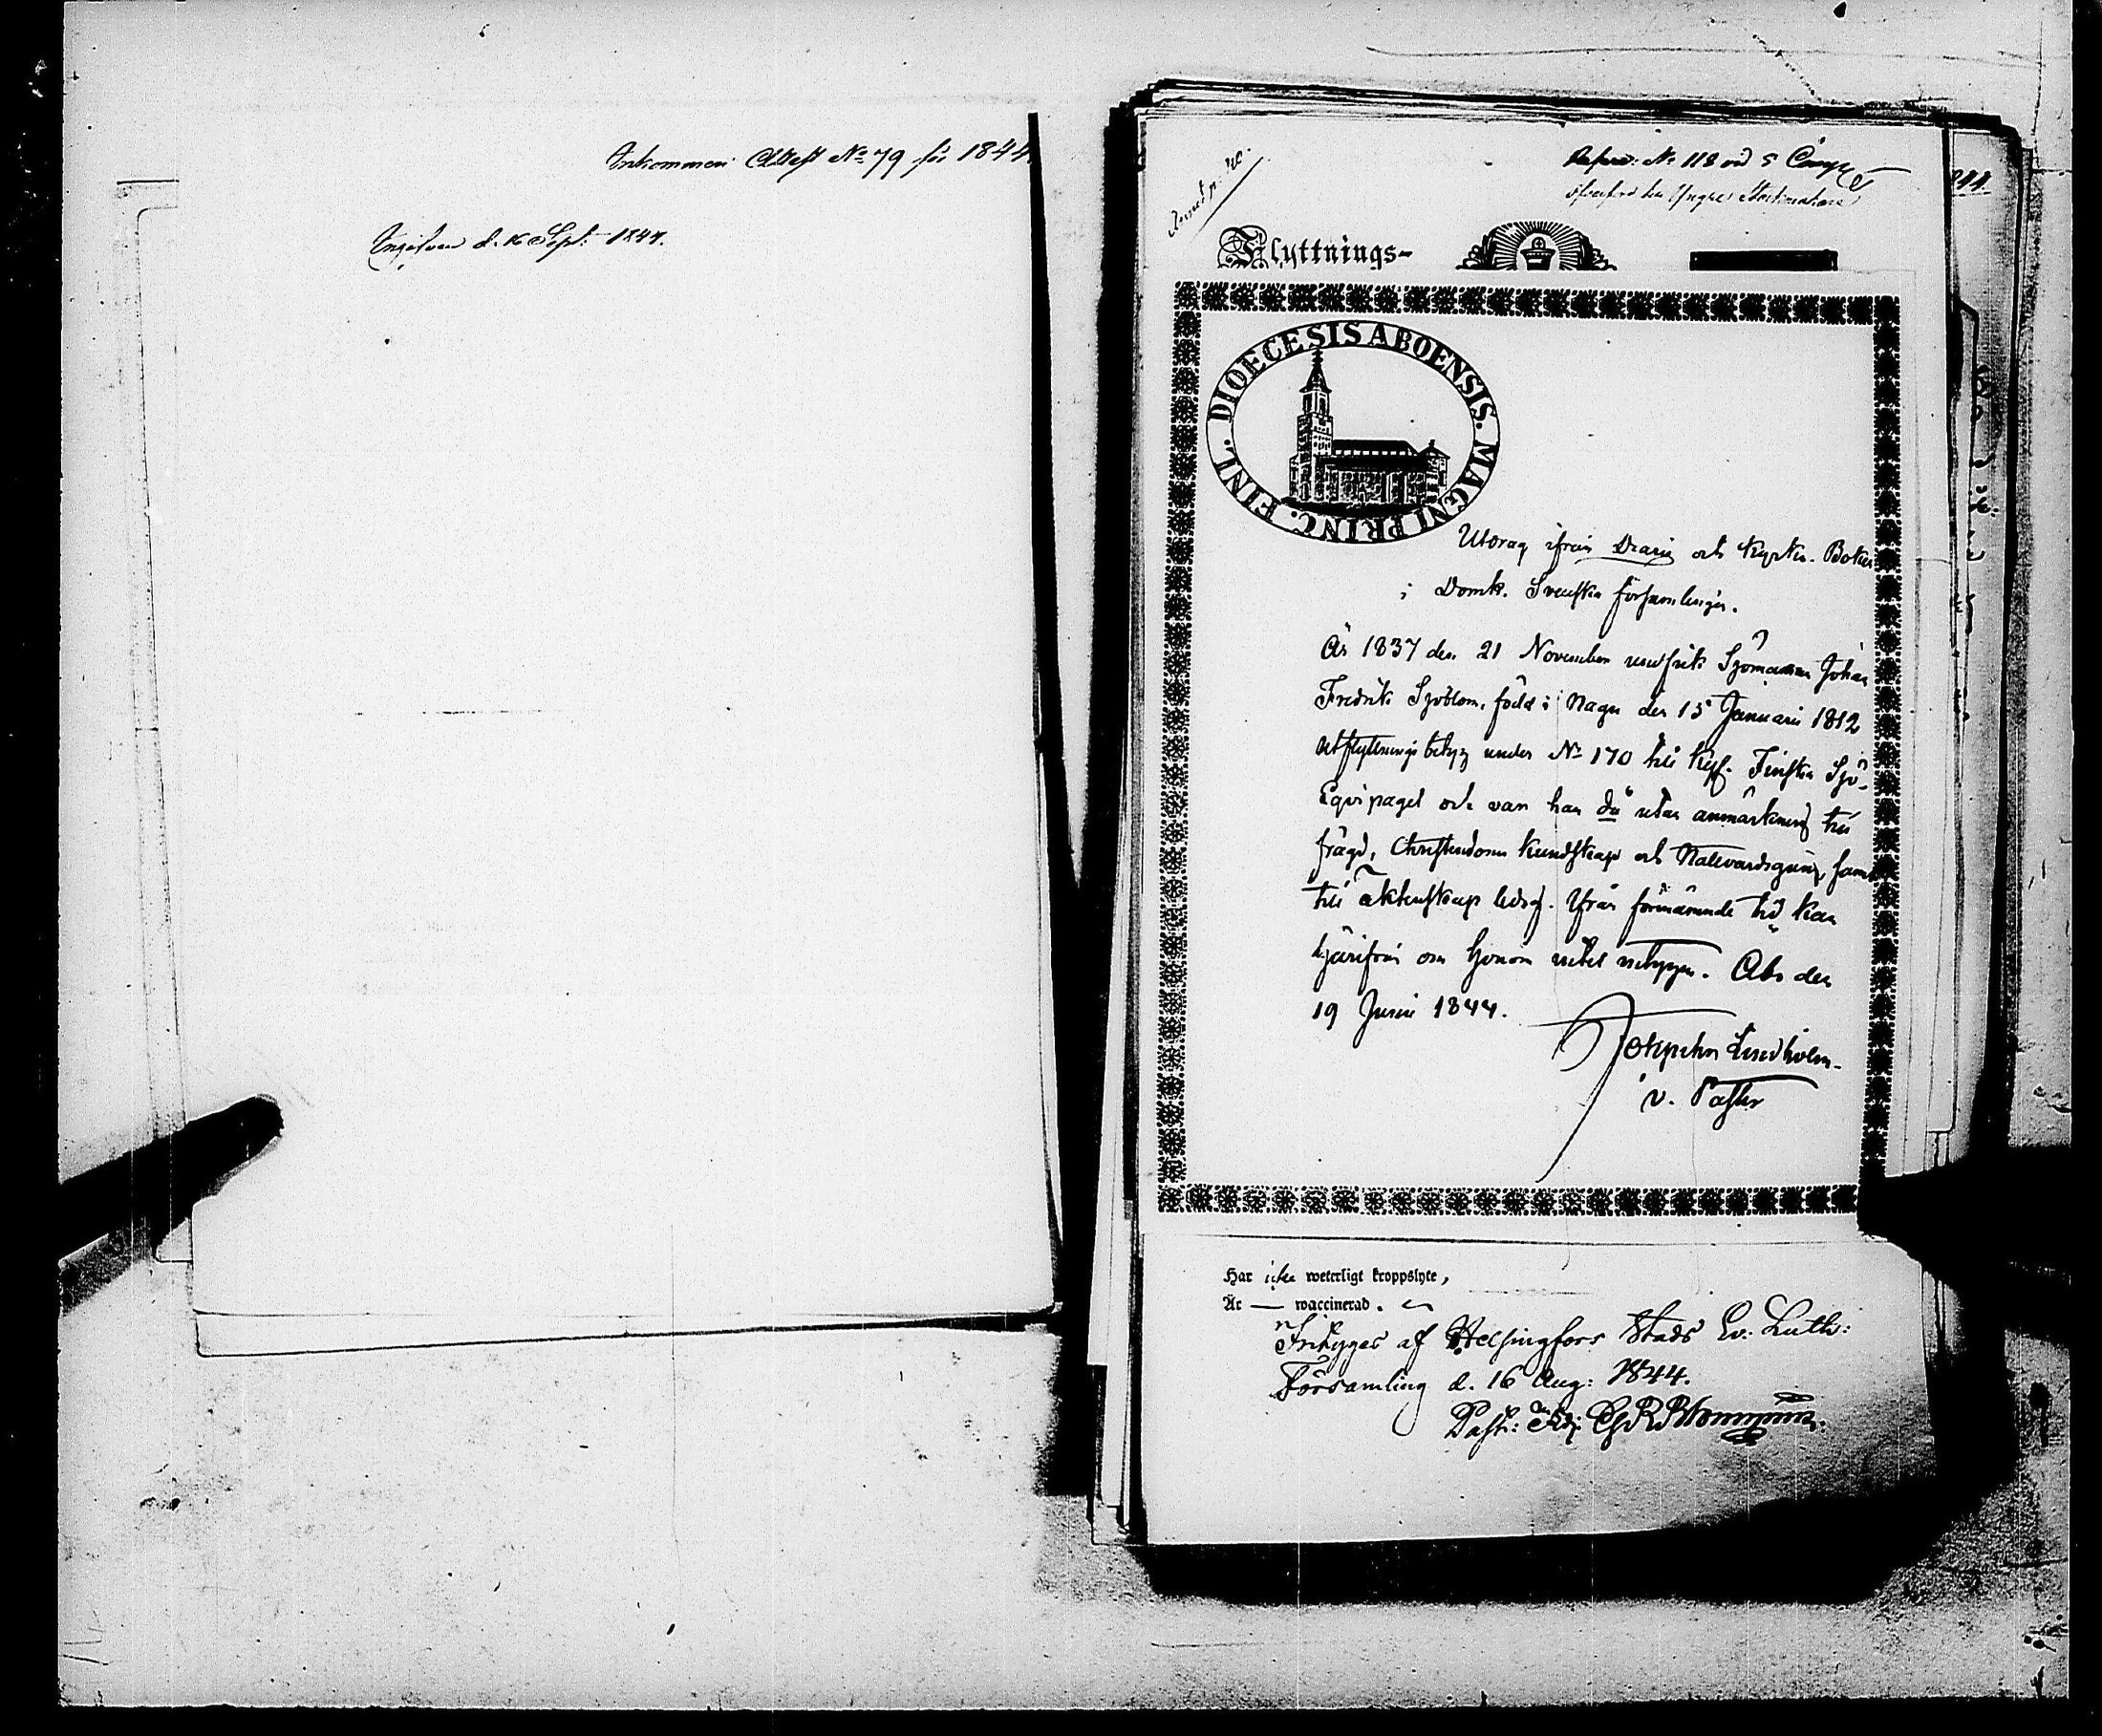 Inkommen Attest No 79 för 1844
Ingifven d. 16 Sept: 1844.
No 112 vid 5 Comp
Flyttnings-
DIOECESIS ABOENSIS. MAGNI PRINC. FINL.
Utdrag ifrån Diarii och Kyrko-Boken
i Domk. Svenska församlingen.
År 1837 den 21 November undfick Sjömannen Johan
Fredrik Sjöblom, född i Nagu den 15 Januarii 1812
utflyttningsbetyg under No 170 till Kejs. Finska Sjö-
Equipaget och var han då utan anmärkning till
frägd, Christendoms kundskap och Nattvardsgång, samt
till äktenskap ledig. Ifrån förenämnde tid kan
härifrån om honom intet intygas. Åbo den
19 Junii 1844.
Lindholm.
v. Pastor
Har icke weterligt kroppslyte,
Är — waccinerad.
Intygas af Helsingfors Stads Ev. Luth:
Församling d. 16 Aug: 1844.
Past: Adj: